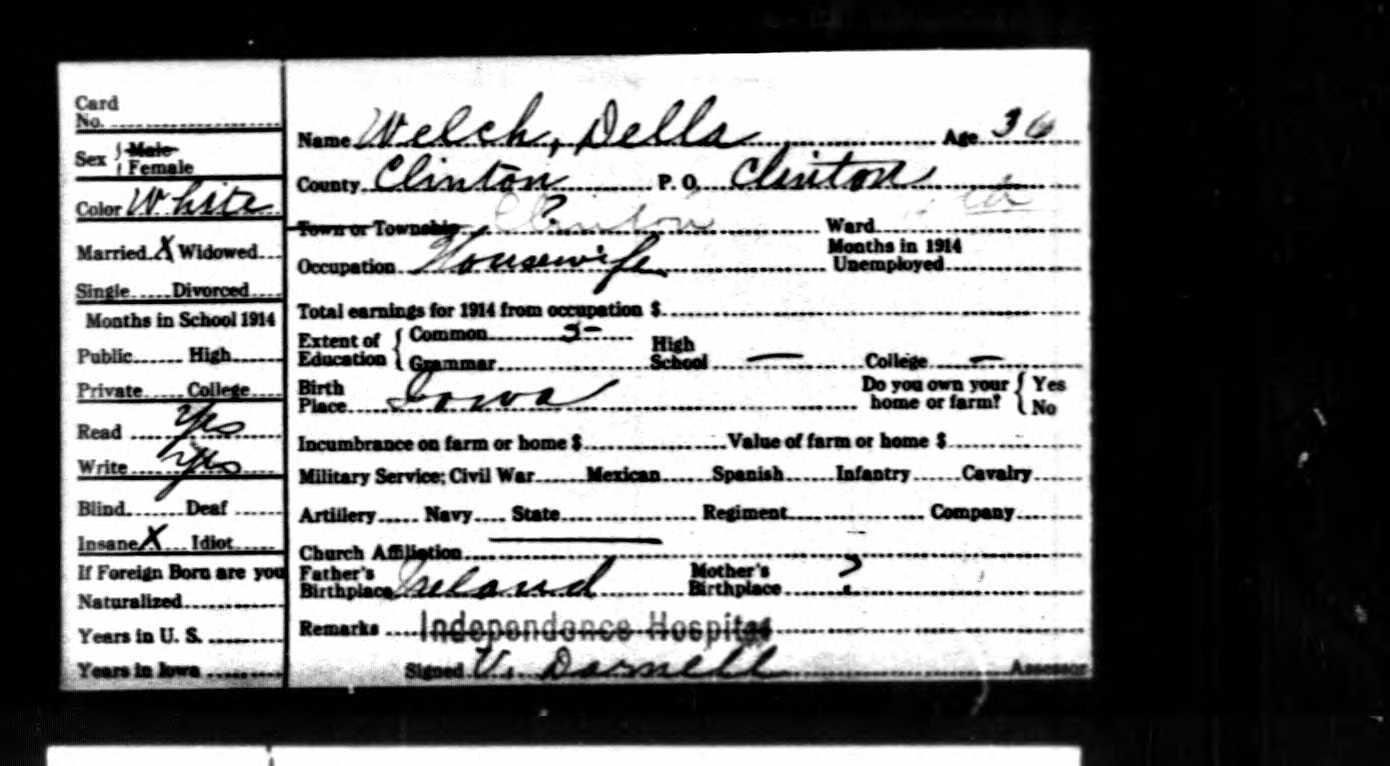 Card
No.
Sex { Male
Female
Color White
Married X Widowed
Single Divorced
Months in School 1914
Public High
Private College
Read Yes
Write Yes
Blind Deaf
Insane X Idiot
If Foreign Born are you
Naturalized
Years in U. S.
Years in Iowa
Name Welch, Della Age 36
County Clinton P. O. Clinton
Town or Township Clinton Ward
Occupation Housewife Months in 1914 Unemployed
Total earnings for 1914 from occupation $
Extent of Education { Common 5-
Grammar High School — College —
Birth Place Iowa Do you own your home or farm? { Yes No
Incumbrance on farm or home $ Value of farm or home $
Military Service; Civil War Mexican Spanish Infantry Cavalry
Artillery Navy State Regiment Company
Church Affiliation
Father's Birthplace Ireland Mother's Birthplace ?
Remarks Independence Hospital
Signed V. Darnell Assessor